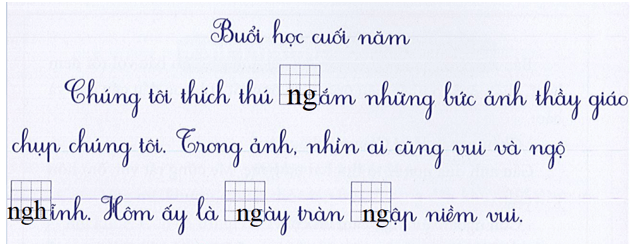 Buổi học cuối năm
Chúng tôi thích thú ngắm những bức ảnh thầy giáo
chụp chúng tôi. Trong ảnh, nhìn ai cũng vui và ngộ
nghĩnh. Hôm ấy là ngày tràn ngập niềm vui.